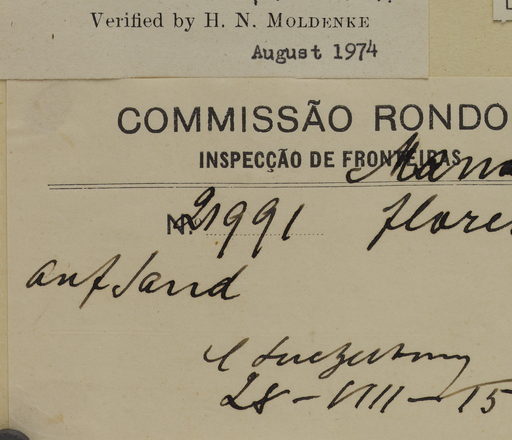 Verified by H. N. MOLDENKE
August 1974
COMMISSÃO RONDO
INSPECÇÃO DE FRONTEIRAS
Nº 21991 flores
auf Sand
28-VIII-15